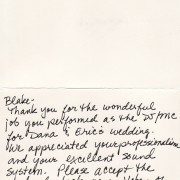 Blake-
Thank you for the wonderful
job you performed as the DJ/MC
for Dana & Eric's wedding.
We appreciated your professionalism
and your excellent sound
system. Please accept the